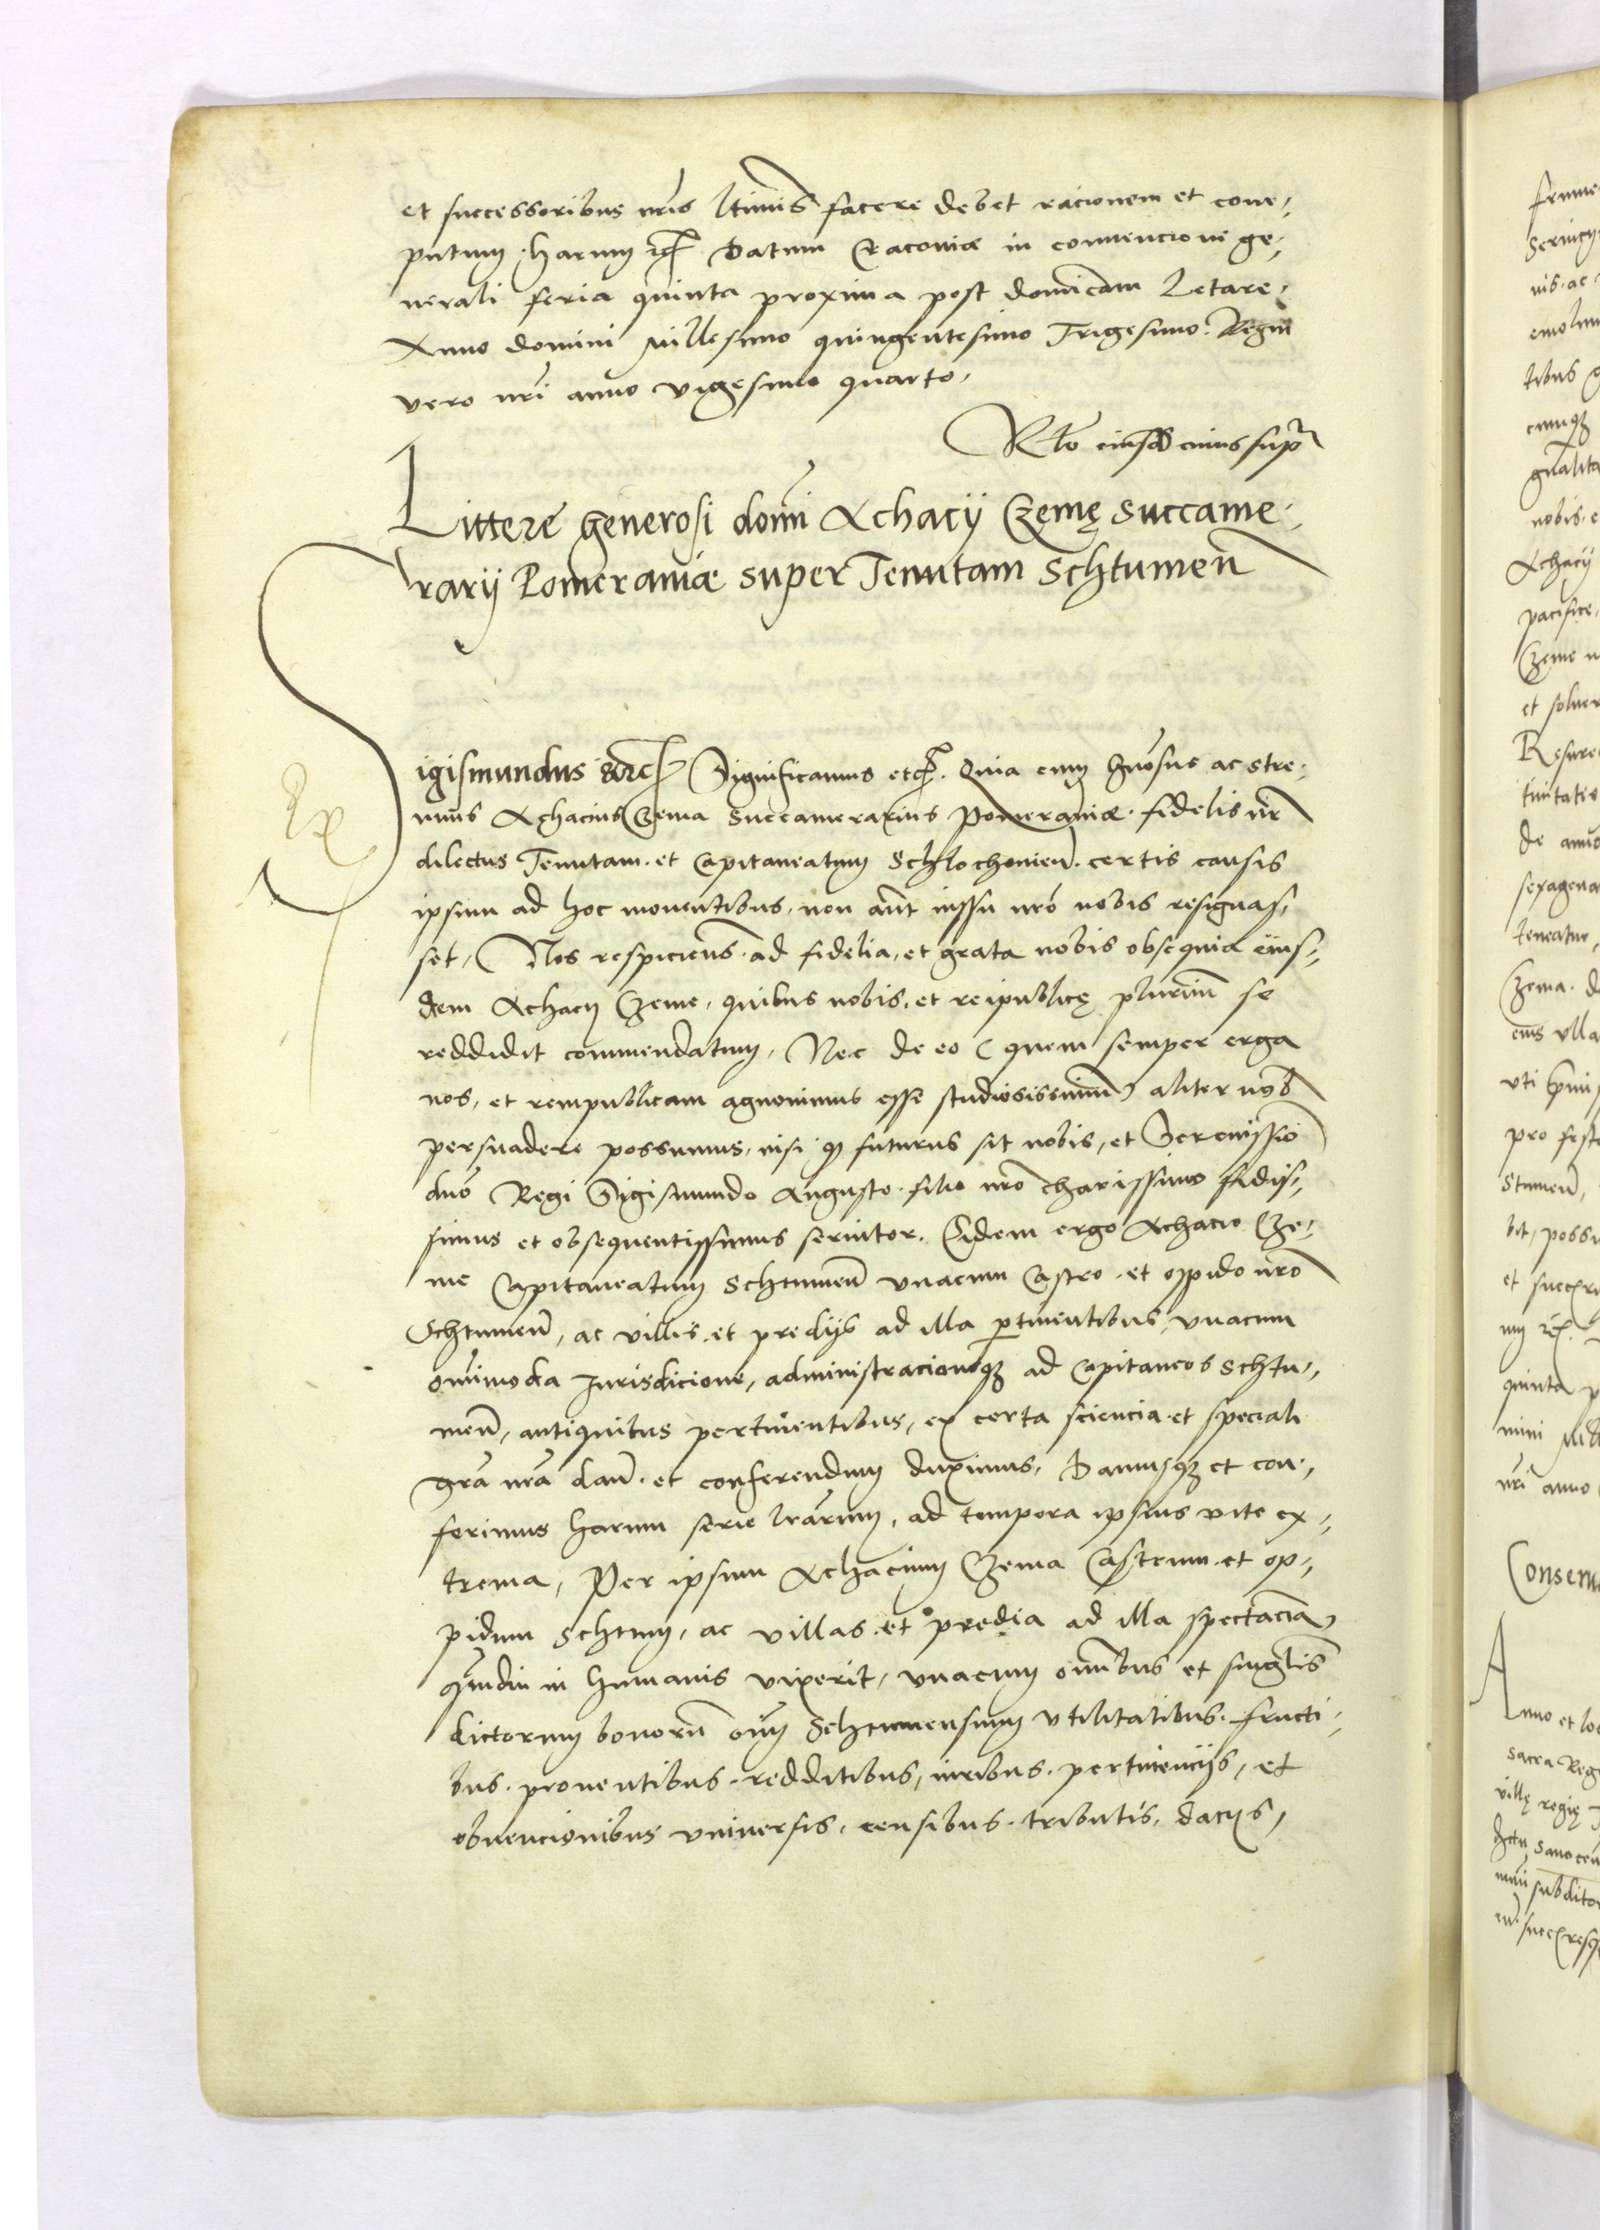 et successoribus nris ltimis facere debet racionem et com⸗
putum. harum etc. Datum Cracoviæ in convencione ge⸗
nerali feria quinta proxima post dominicam Letare.
Anno domini Millesimo quingentesimo Trigesimo. Regni
vero nri anno vigesimo quarto.
Rlo eiusd cuius supr
Littere generosi domi Achacij Czemę succame⸗
rarij Pomeraniæ super Tenutam Schtumen
Sigismundus etc. Significamus etc. Quia cum gnosus ac stre⸗
nuus Achacius Czema Succamerarius Pomeraniæ. fidelis nr
dilectus Tenutam. et Capitaneatum Schlochovien. certis causis
ipsum ad hoc moventibus, non ant iussu nro nobis resignas⸗
set, Nos respiciens. ad fidelia, et grata nobis obsequia eius⸗
dem Achacij Czeme, quibus nobis, et reipublicę plurimu se
reddidit commendatum, Nec de eo (quem semper erga
nos, et rempublicam agnovimus esse studiosissimu) aliter nob
persuadere possumus, nisi q futurus sit nobis, et Serenissio
dno Regi Sigismundo Augusto. filio nro charissimo fidis⸗
simus et obsequentissimus servitor. Eidem ergo Achacio Cze⸗
me Capitaneatum Schtumen unacum Castro. et oppido nro
Schtumen, ac villis. et predijs ad illa pertinentibus, unacum
omimoda Jurisdicione, administracioneq ad Capitaneos Schtu⸗
men, antiquitus pertinentibus, ex certa sciencia. et speciali
gra nra dan. et conferendum duximus, Damusq et con⸗
ferimus harum serie lrarum, ad tempora ipsius vite ex⸗
trema, Per ipsum Achacium Czema Castrum. et op⸗
pidum Schtum, ac villas. et predia ad illa spectacia
qmdiu in humanis vixerit, unacum omibus et singlis
dictorum bonoru oim Schtumensium utilitatibus. fructi⸗
bus. proventibus. redditibus, iuribus. pertinencijs, et
obvencionibus universis, censibus. tributis. dacijs,